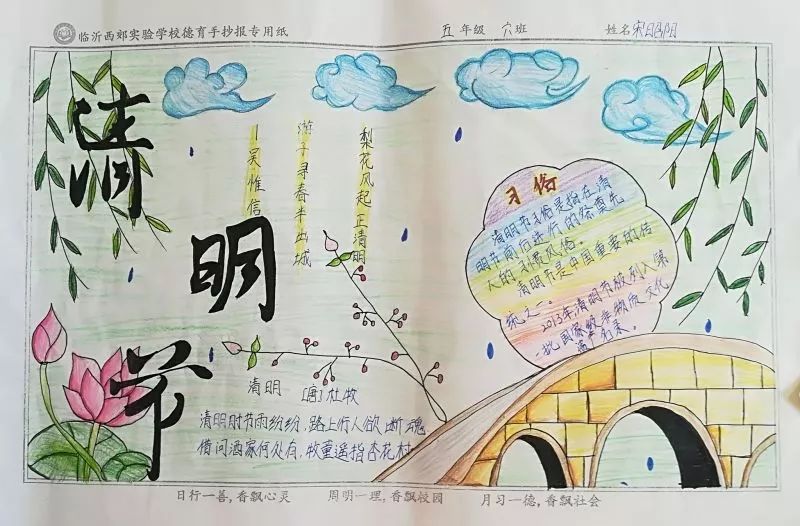 临沂西郊实验学校德育手抄报专用纸
五年级 六班 姓名宋昭阳
清
明
节
梨花风起正清明
游子寻春半出城
—吴惟信
习俗
清明节习俗是指在清
明节前后进行的祭奠先
人的习景风俗。
清明节是中国重要的传
统之一。
2013年清明节被列入第
一批国家级非物质文化
遗产名录。
清明 [唐]杜牧
清明时节雨纷纷,路上行人欲断魂
借问酒家何处有,牧童遥指杏花村
日行一善,香飘心灵 周明一理,香飘校园 月习一德,香飘社会